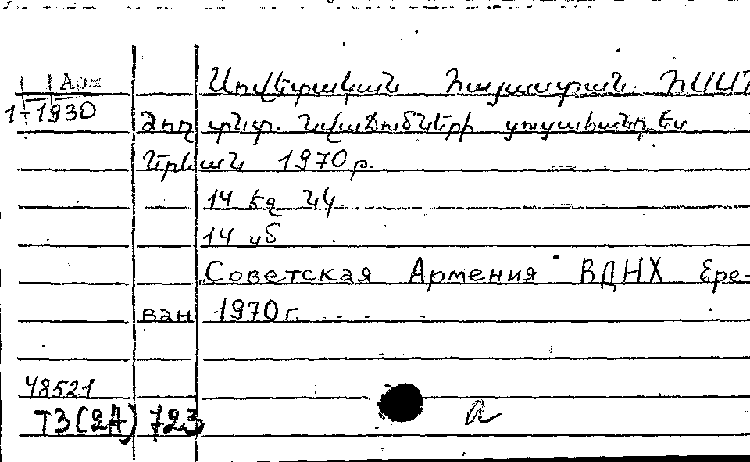 Арм
1-1930
Սովետական Հայաստան. ՀՍՍՀ
ժող տնտ. նվաճումների ցուցահանդես
Երևան 1970թ.
14 էջ նկ
14 սմ
Советская Армения ВДНХ Ере-
ван 1970г.
48521
T3(2A) 723
a